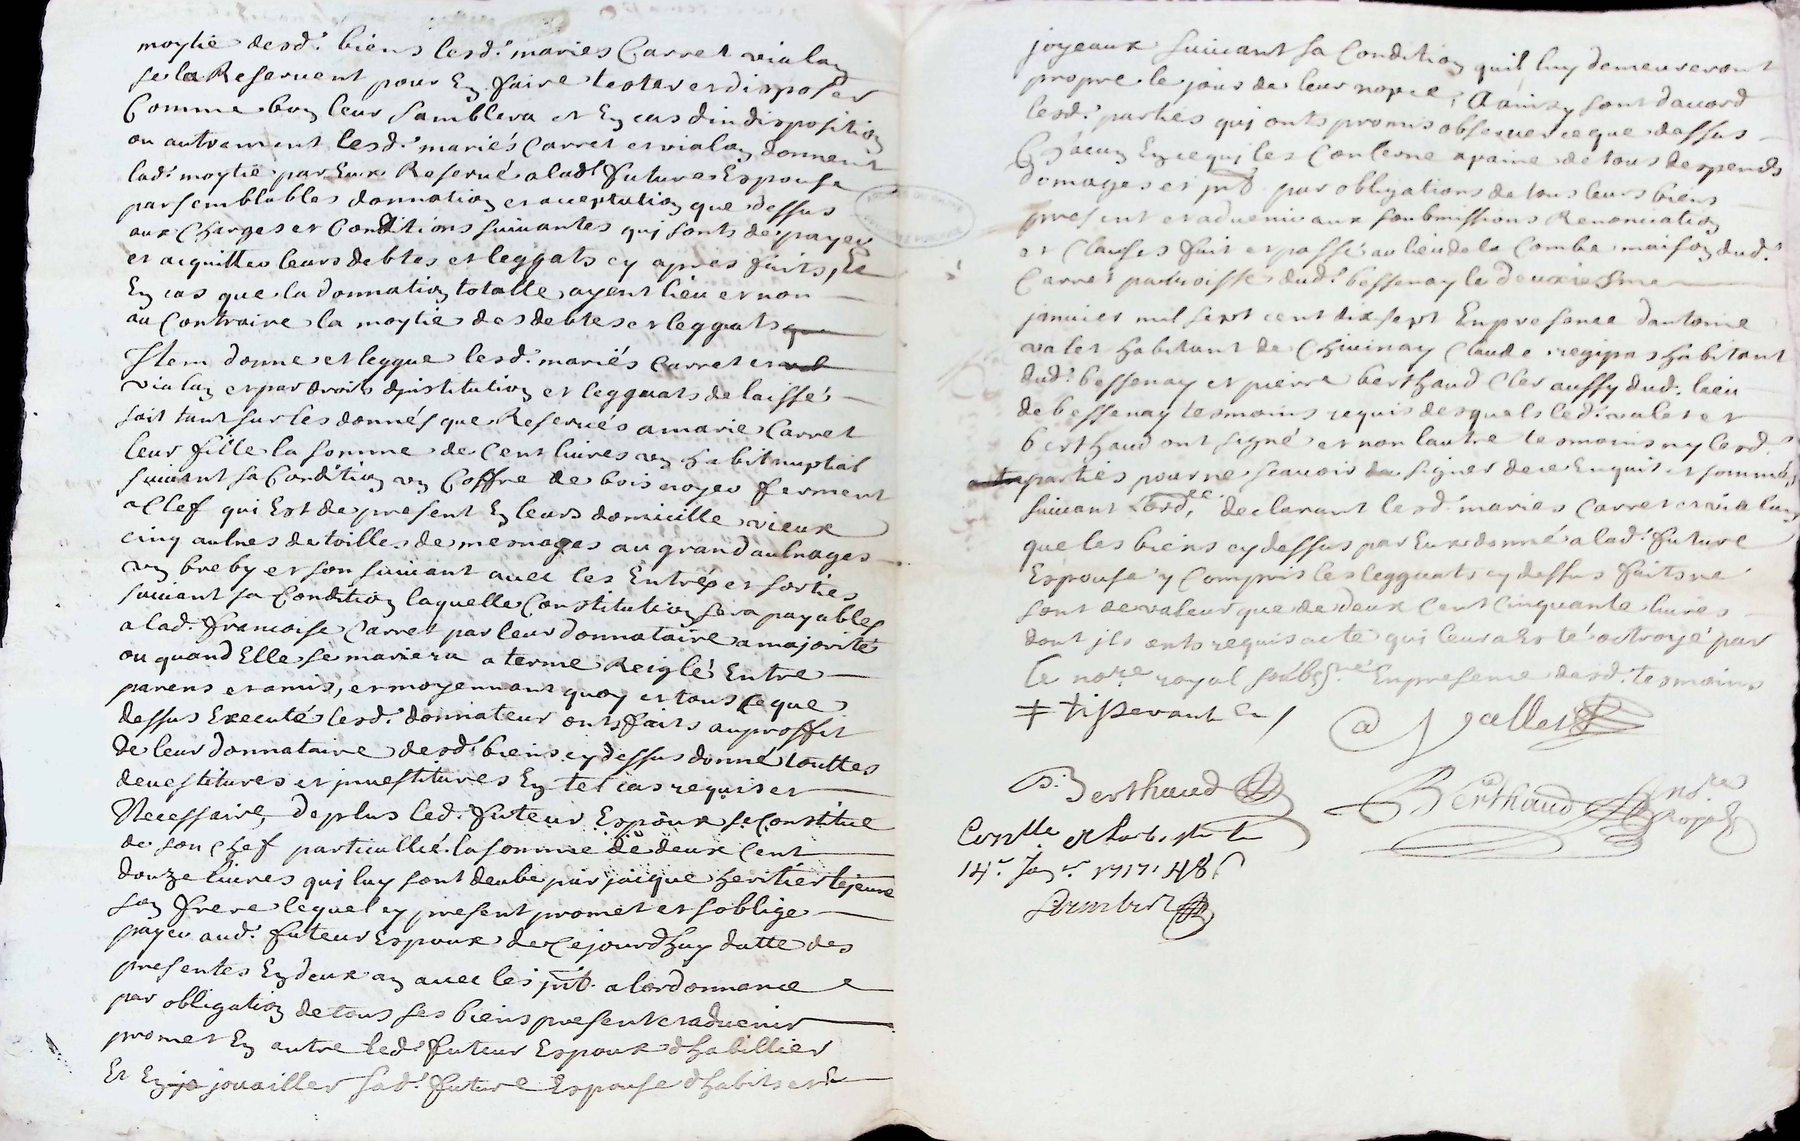 moytié desd.s biens lesd.s mariés Carret vialon
se la Reservent pour En faire tester et disposer
Comme bon leur samblera et En cas dindisposition
ou autrement lesd.s mariés Carret et vialon donnent
lad.e moytié par Eux Reservé a lad.e future Espouse
par semblables donnation et acceptation que dessus
aux Charges et Conditions suivantes qui sonts de payer
et acquitter leurs debtes et leggats cy apres faits, Et
En cas que la donnation totalle ayent lieu et non
au Contraire la moytié des debtes et legguats
Item donne et leggue lesd.s mariés Carret et
vialon et par droits dinstitution et legguats delaissés
soit tant sur les donnés que Reservés a marie Carret
leur fille la somme de Cent livres un habit nuptial
suivant sa Condition un Coffre de bois noyer ferment
a Clef qui Est de present En leurs domicille vieux
cinq aulnes de toilles de mesnages au grand aulnages
un breby et son suivant avec les Entrés et sorties
suivant sa Condition laquelle Constitution sera payables
a lad. francoise Carret par leur donnataire a majorité
ou quand Elle se mariera a terme Reiglé Entre
parens et amis, et moyennant quoy et tous ce que
dessus Executé lesd.s donnateur onts faits au proffit
de leur donnataire desd.s biens cy dessus donné touttes
devestitures et jnvestitures En tel cas requis et
Necessaire, de plus led. futeur Espoux se Constitue
de son chef particullié la somme de deux Cent
douze livres qui luy sont deube par jacque heritier lejeune
son frere lequel cy present promet et soblige
payer aud.t futeur Espoux de Ce jourdhuy datte des
presentes En deux an avec les jnt. a lordonnance
par obligation de tous ses biens present et advenir
promet En autre led.t futeur Espoux dhabillier
Et En jouailler sad.e future Espouse dhabits et
joyeaux suivant sa Condition quil luy demeureront
propre le jour de leur nopce, Aainsy sont daccord
lesd.s parties qui onts promis observer ce que dessus
Chacun En ce qui les Concerne a paine de tous despends
domages et jnt. par obligations de tous leurs biens
present et advenir aux soubmissions Renonciation
et Clauses fait et passé au lieu de la Combe maison dud.t
Carret parroisse dud.t bessenay le deuxiesme
janvier mil sept cent dix sept En presence dantoine
valet habitant de Chivinay Claude regipas habitant
dud.t bessenay et pierre berthaud Cler aussy dud. lieu
de bessenay tesmoins requis desquels ledit valet et
berthaud ont signé et non lautre tesmoins ny lesd.
parties pour ne scavoir signer de ce Enquis et sommés
suivant lord.ce declarant lesd.s mariés Carret et vialon
que les biens cy dessus par Eux donné a lad.e future
Espouse y Compris les legguats cy dessus faits ne
sont de valeur que de deux Cent Cinquante livres
dont jls onts requis acte qui leur a Esté octroyé par
le no.re royal soubs.né En presence desd.s tesmoins
‡ tisserant
Vallet
P. Berthaud
Berthaud no.re Royal
14.r Jan.r 1717.